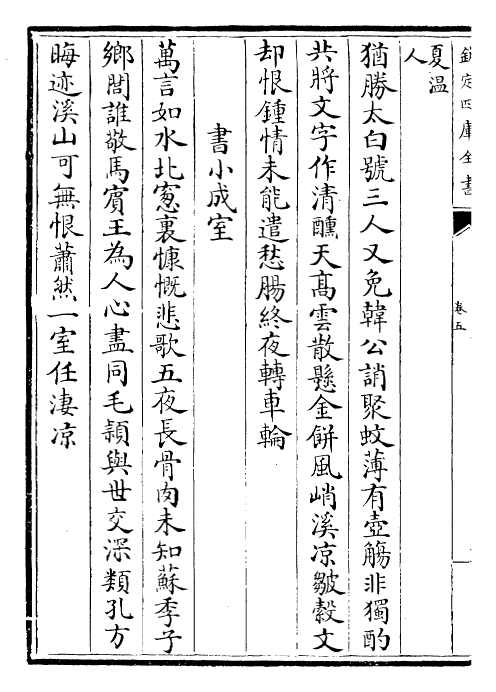 欽定四庫全書
卷五
夏温
人
猶勝太白號三人又免韓公誚聚蚊薄有壺觴非獨酌
共將文字作清醺天髙雲散懸金餅風峭溪凉皺縠文
却恨鍾情未能遣愁腸終夜轉車輪
書小成室
萬言如水北窓裏慷慨悲歌五夜長骨肉未知蘇季子
鄉閭誰敬馬賓王為人心盡同毛頴與世交深類孔方
晦迹溪山可無恨蕭然一室任淒凉